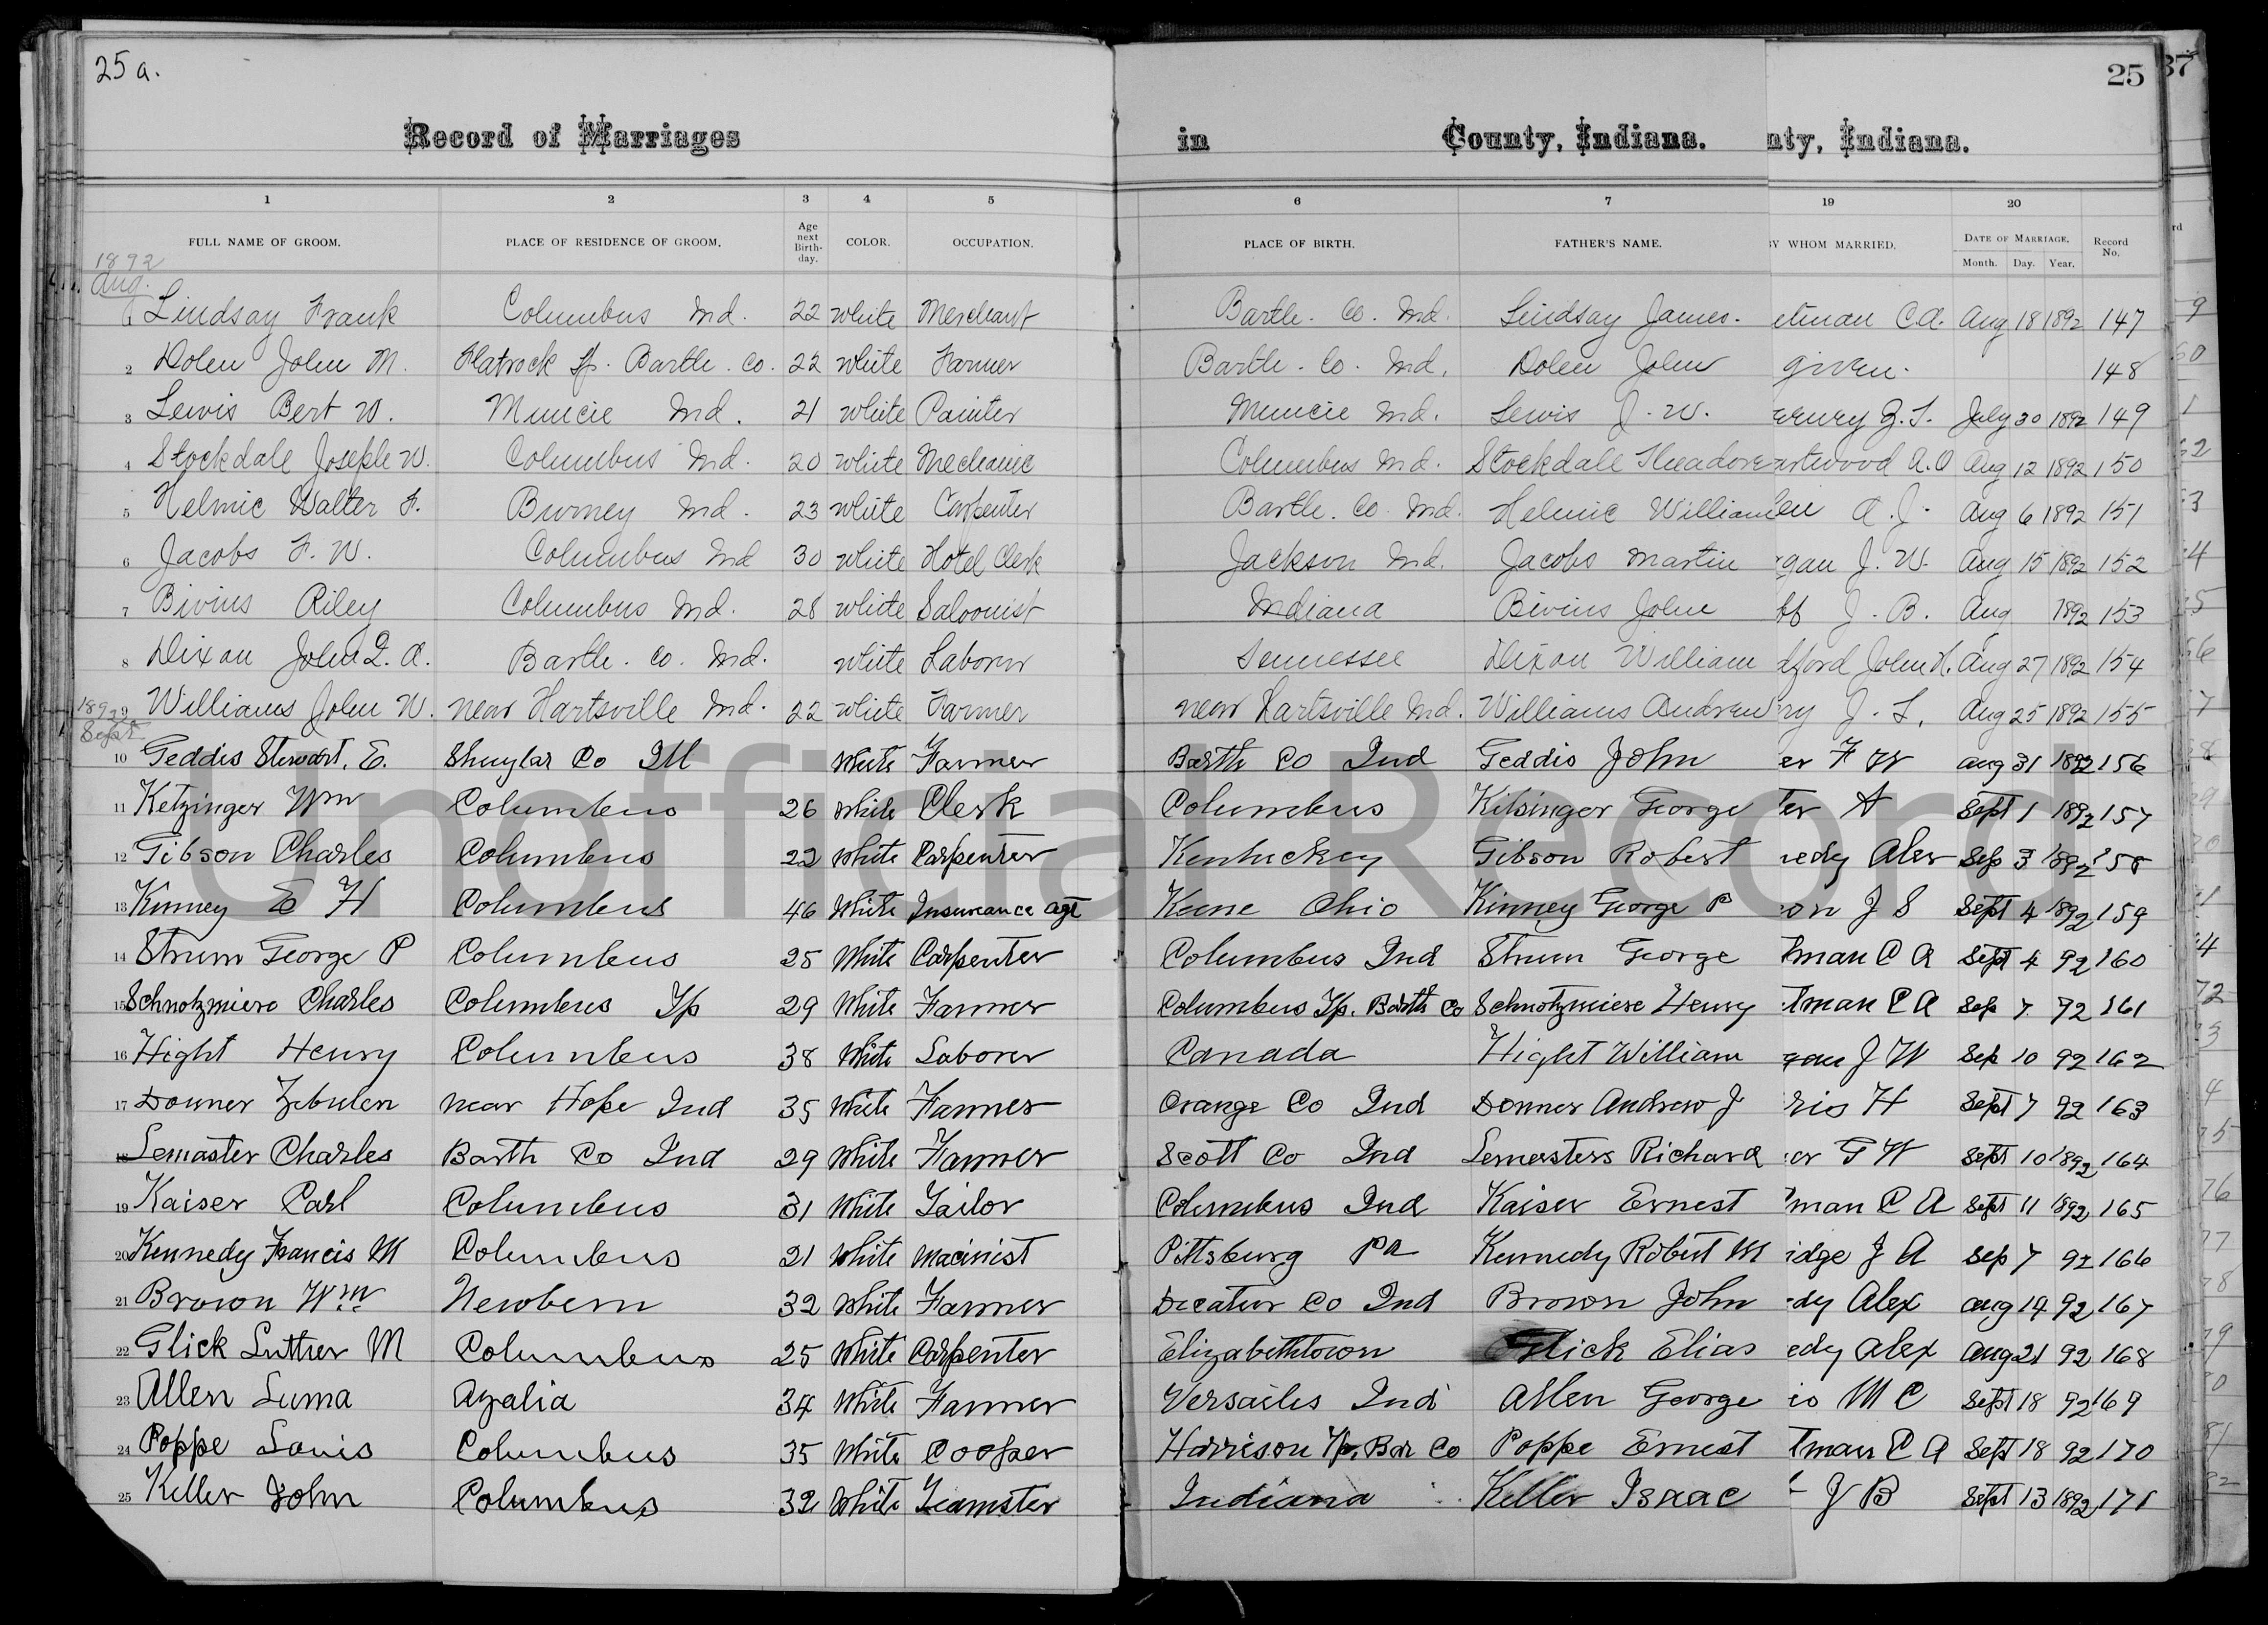 25 a.
25
37
Record of Marriages in County, Indiana. nty, Indiana.
1 2 3 4 5 6 7 19 20
FULL NAME OF GROOM. PLACE OF RESIDENCE OF GROOM. Age next Birth-day. COLOR. OCCUPATION. PLACE OF BIRTH. FATHER'S NAME. BY WHOM MARRIED. DATE OF MARRIAGE. Month. Day. Year. Record No. rd
1892
Aug.
1 Lindsay Frank Columbus Ind. 22 white Merchant Barth. Co. Ind. Lindsay James. etman C.A. Aug 18 1892 147
2 Dolen John M. Flatrock Tp. Barth. Co. 22 white Farmer Barth. Co. Ind. Dolen John given. 148
3 Lewis Bert W. Muncie Ind. 21 white Painter Muncie Ind. Lewis J. W. July 30 1892 149
4 Stockdale Joseph W. Columbus Ind. 20 white Mechanic Columbus Ind. Stockdale Theadore rtwood A.O Aug 12 1892 150
5 Helmic Walter F. Burney Ind. 23 white Carpenter Barth. Co. Ind. Helmic William en A. J. Aug 6 1892 151
6 Jacobs F. W. Columbus Ind 30 white Hotel Clerk Jackson Ind. Jacobs Martin gan J. W. Aug 15 1892 152
7 Bivins Riley Columbus Ind. 28 white Saloonist Indiana Bivins John ff J. B. Aug 1892 153
8 Dixon John Q. A. Barth. Co. Ind. white Laborer Tennessee Dixon William dford John H. Aug 27 1892 154
9 Williams John W. near Hartsville Ind. 22 white Farmer near Hartsville Ind. Williams Andrew ry J. L. Aug 25 1892 155
1892
Sept
10 Geddis Stewart. E. Shuylar Co Ill White Farmer Barth Co Ind Geddis John er F W Aug 31 1892 156
11 Ketzinger Wm Columbus 26 White Clerk Columbus Kitsinger George ter A Sept 1 1892 157
12 Gibson Charles Columbus 22 White Carpenter Kentuckey Gibson Robert nedy Alex Sep 3 1892 158
13 Kinney E H Columbus 46 White Insurance agt Keene Ohio Kinney George P on J S Sept 4 1892 159
14 Strum George P Columbus 25 White Carpenter Columbus Ind Strum George tman C A Sept 4 92 160
15 Schnotzmiere Charles Columbus Tp 29 White Farmer Columbus Tp. Barth Co Schnotzmiere Henry tman C A Sep 7 92 161
16 Hight Henry Columbus 38 White Laborer Canada Hight William gan J W Sep 10 92 162
17 Donner Zebulen near Hope Ind 35 White Farmer Orange Co Ind Donner Andrew J ris H Sept 7 92 163
18 Lemaster Charles Barth Co Ind 29 White Farmer Scott Co Ind Lemesters Richard er G W Sept 10 1892 164
19 Kaiser Carl Columbus 31 White Tailor Columbus Ind Kaiser Ernest tman C A Sept 11 1892 165
20 Kennedy Francis M Columbus 21 White Macinist Pittsburg Pa Kennedy Robert M idge J A Sep 7 92 166
21 Brown Wm Newbern 32 White Farmer Decatur Co Ind Brown John edy Alex Aug 14 92 167
22 Glick Luther M Columbus 25 White Carpenter Elizabethtown Glick Elias edy Alex Aug 21 92 168
23 Allen Luma Azalia 34 White Farmer Versailes Ind Allen George is M C Sept 18 92 169
24 Poppe Louis Columbus 35 White Cooper Harrison Tp. Bar Co Poppe Ernest tman C A Sept 18 92 170
25 Keller John Columbus 32 White Teamster Indiana Keller Isaac J B Sept 13 1892 171
Unofficial Record